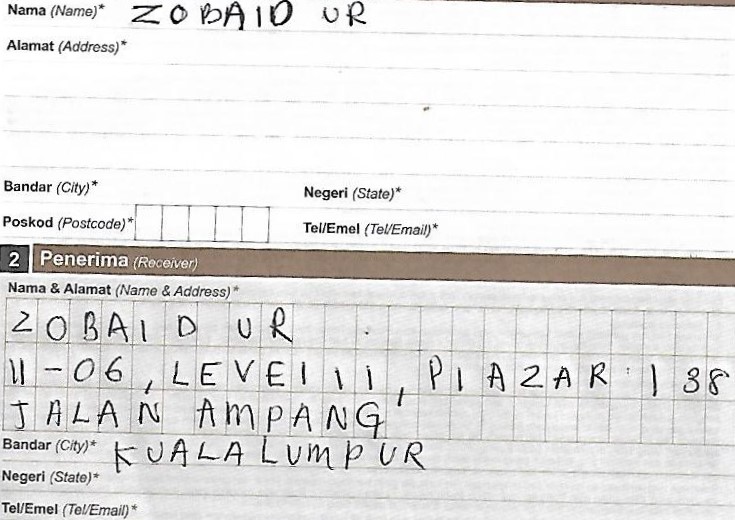 Nama (Name)* ZOBAID UR
Alamat (Address)*
Bandar (City)* Negeri (State)*
Poskod (Postcode)* Tel/Emel (Tel/Email)*
2 Penerima (Receiver)
Nama & Alamat (Name & Address)*
ZOBAID UR
11-06, LEVEl 11, PlAZAR 138
JALAN AMPANG
Bandar (City)* KUALA LUMPUR
Negeri (State)*
Tel/Emel (Tel/Email)*